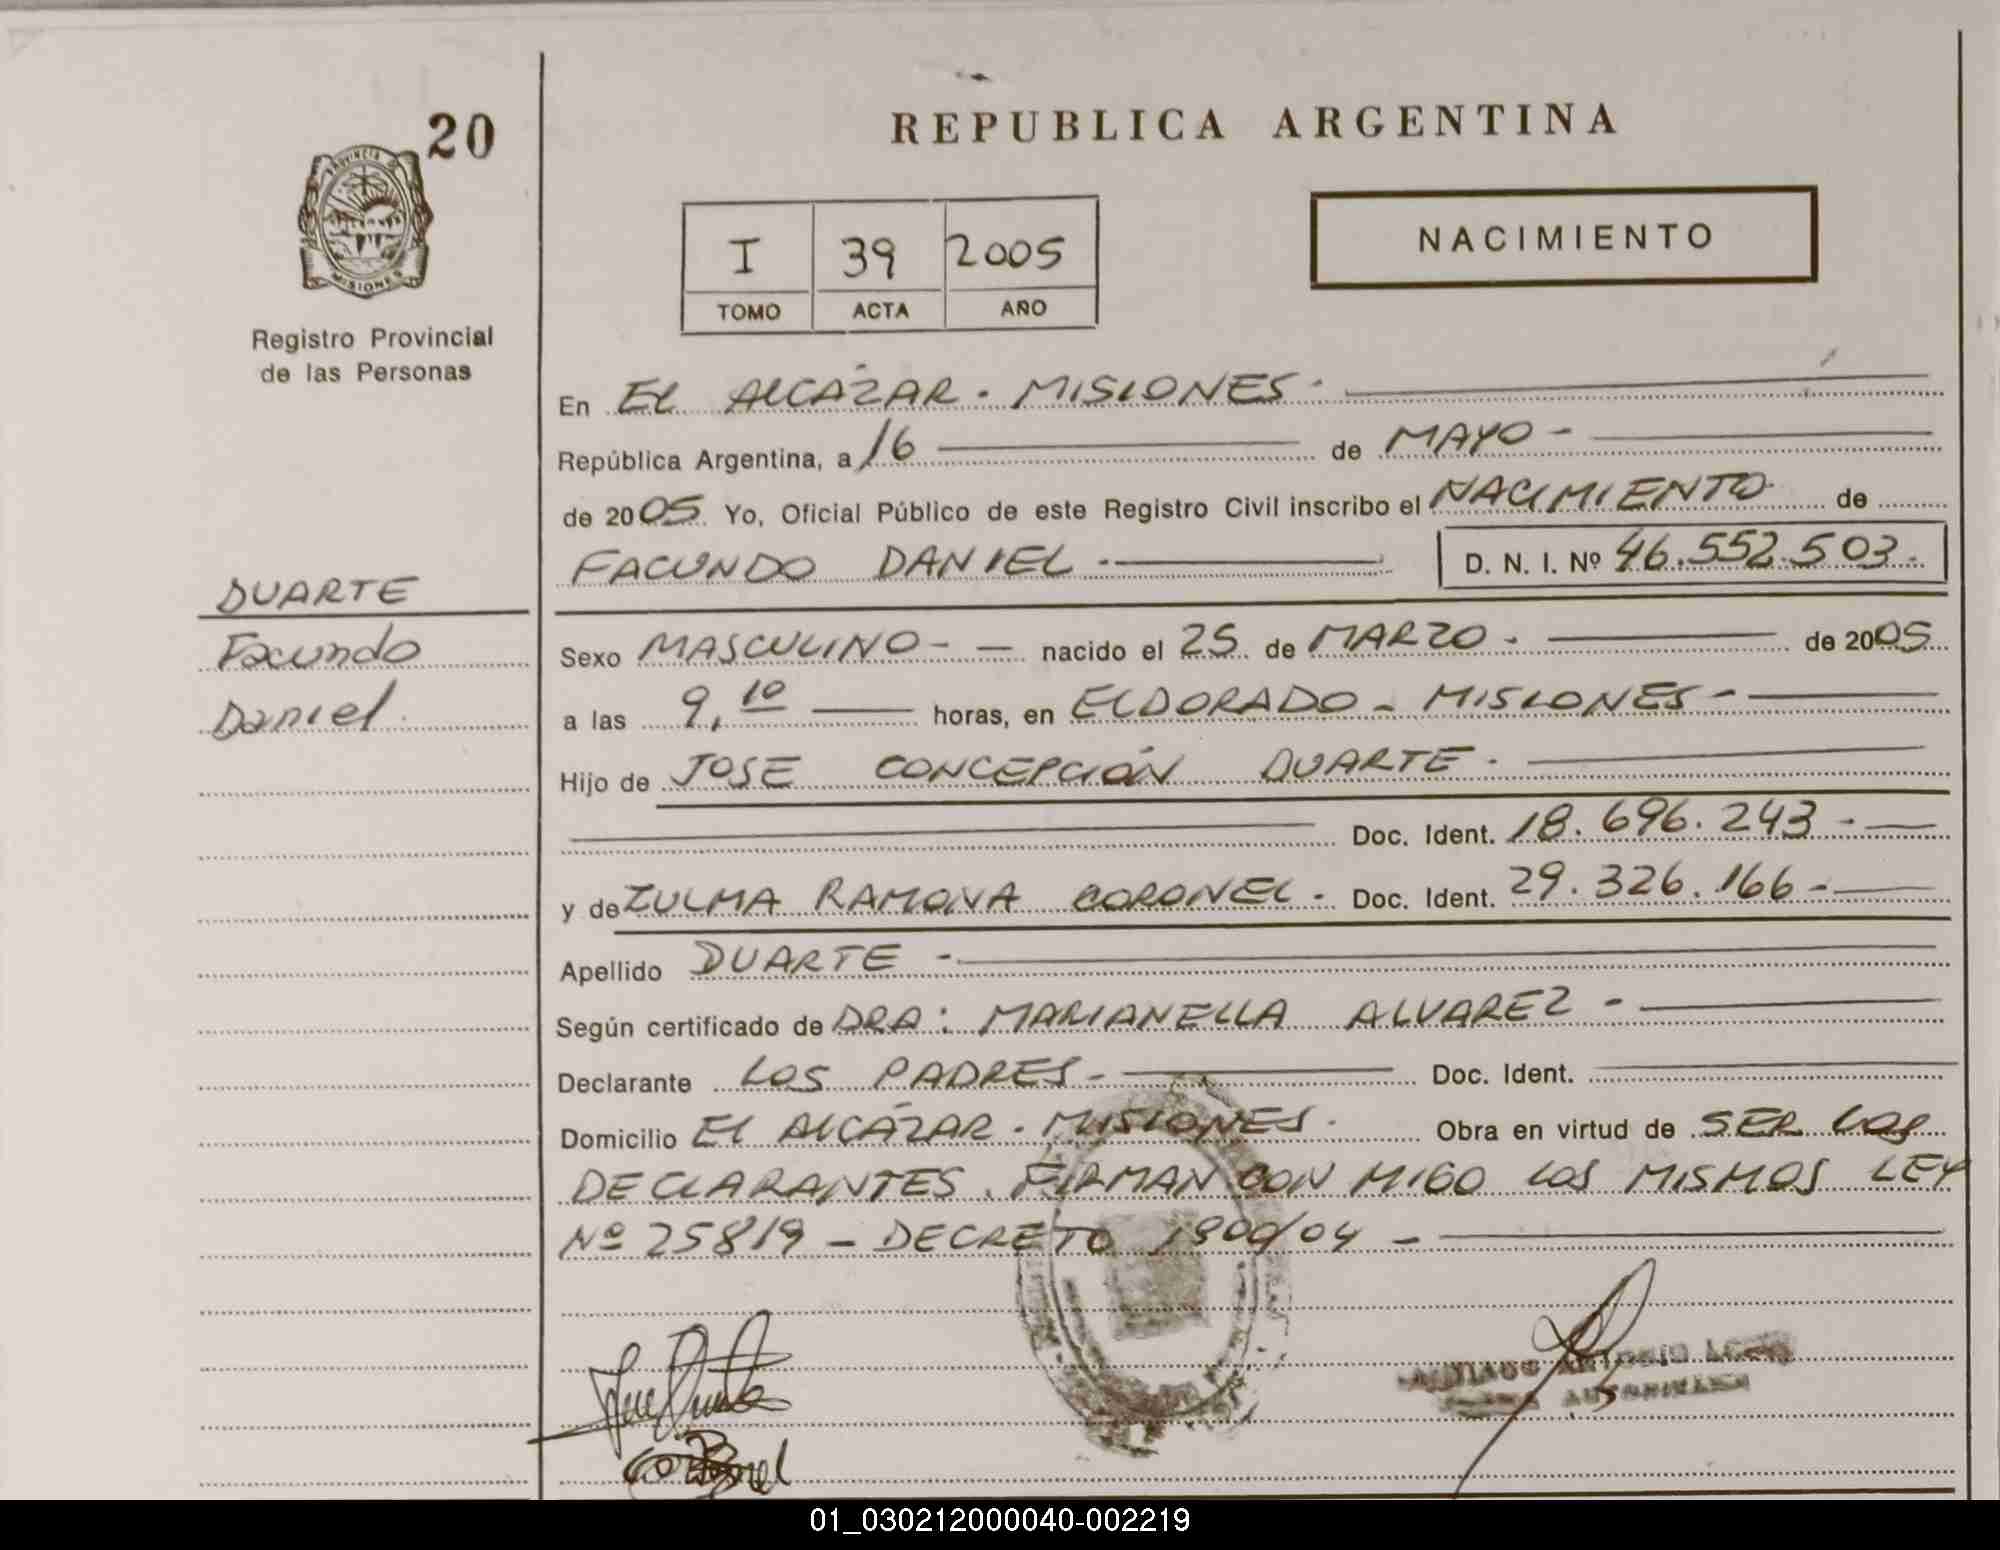 20
REPUBLICA ARGENTINA
PROVINCIA DE
MISIONES
Registro Provincial
de las Personas
I 39 2005
TOMO ACTA AÑO
NACIMIENTO
En EL ALCÁZAR. MISIONES.
República Argentina, a 16 de MAYO-
de 2005 Yo, Oficial Público de este Registro Civil inscribo el NACIMIENTO de
FACUNDO DANIEL.- D. N. I. Nº 46.552.503.-
DUARTE
Facundo
Daniel.
Sexo MASCULINO- - nacido el 25 de MARZO. de 2005
a las 9,10 horas, en ELDORADO - MISIONES -
Hijo de JOSE CONCEPCIÓN DUARTE.
Doc. Ident. 18.696.243.-
y de ZULMA RAMONA CORONEL. Doc. Ident. 29.326.166.-
Apellido DUARTE -
Según certificado de DRA: MARIANELLA ALVAREZ -
Declarante LOS PADRES- Doc. Ident.
Domicilio EL ALCÁZAR. MISIONES. Obra en virtud de SER LOS
DECLARANTES. FIRMAN CON MIGO LOS MISMOS LEY
Nº 25819 - DECRETO 1900/04 -
ANTONIO
01_030212000040-002219